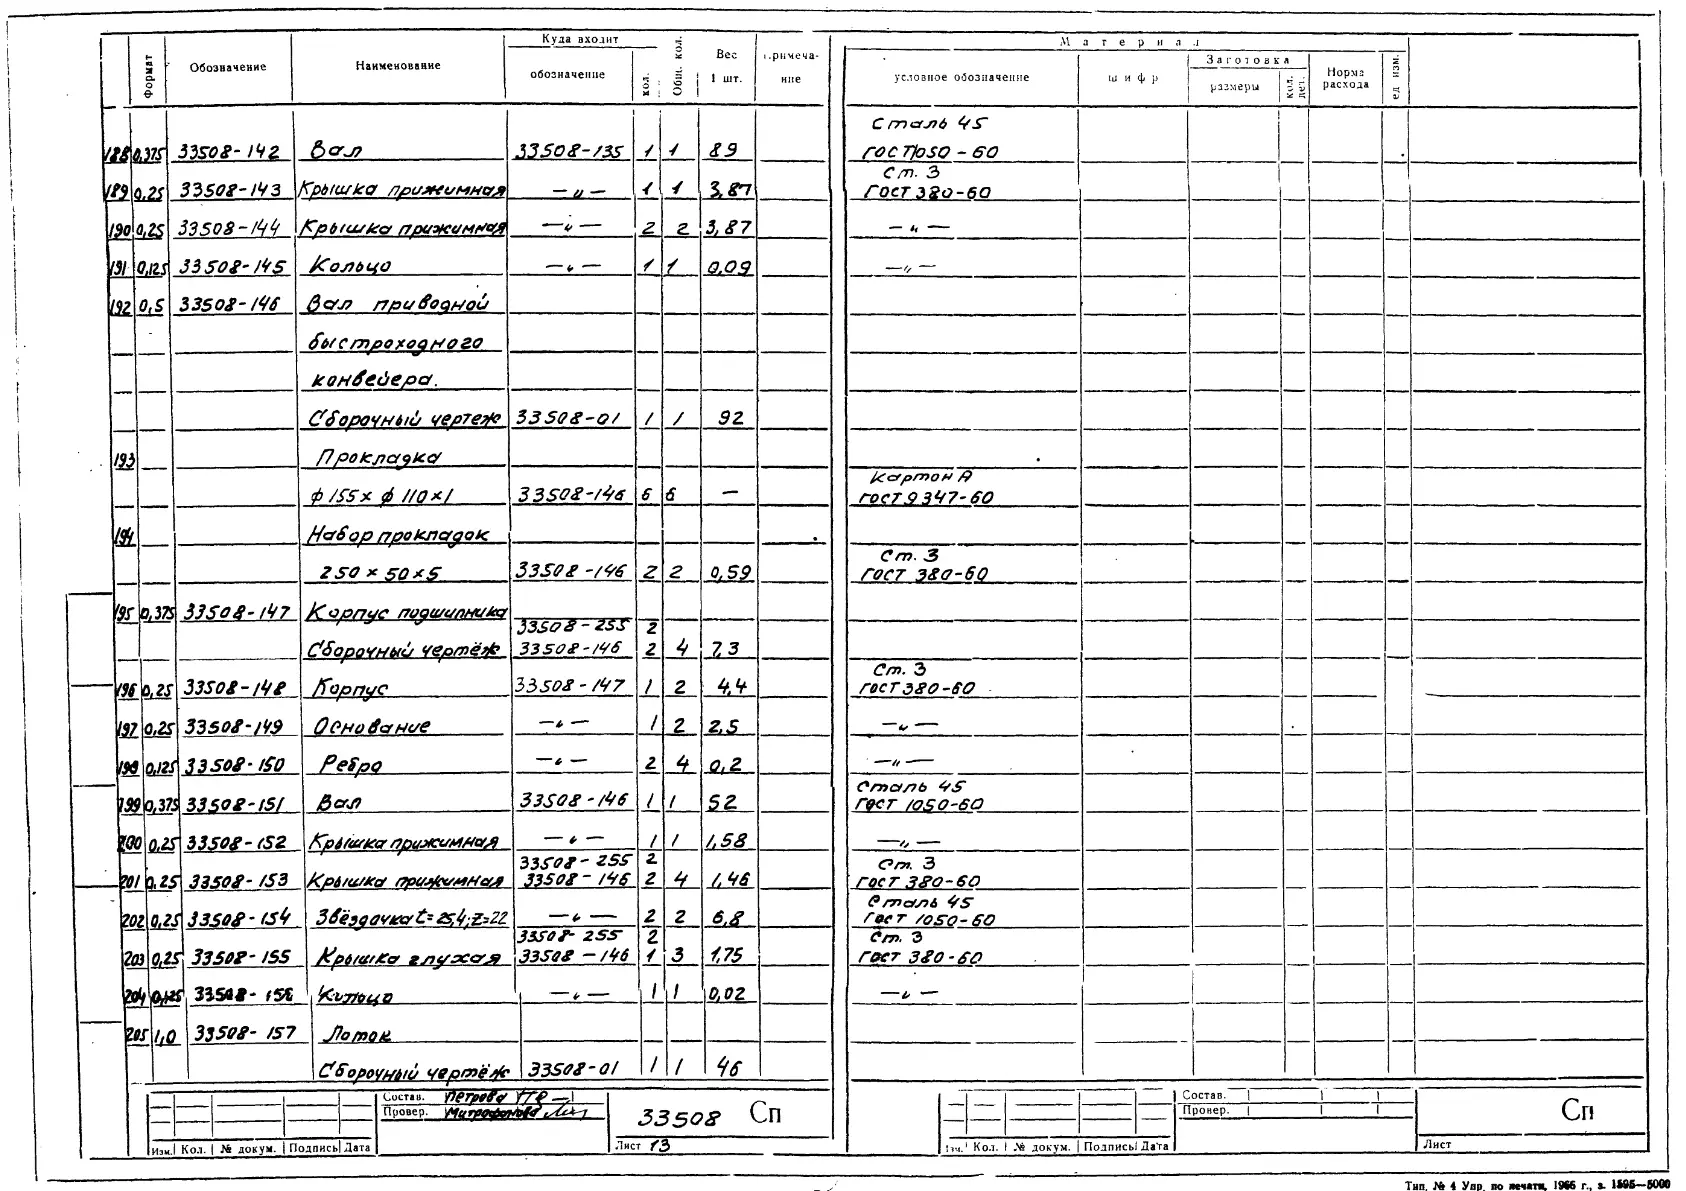 № п.п. Формат Обозначение Наименование Куда входит обозначение кол. Общ. кол. Вес 1 шт. Примечание Материал условное обозначение шифр Заготовка размеры кол. дет. Норма расхода ед изм.
Сталь 45
188 0,375 33508-142 Вал 33508-135 1 1 89 ГОСТ 1050-60
Ст. 3
189 0,25 33508-143 Крышка прижимная —"— 1 1 3,87 ГОСТ 380-60
190 0,25 33508-144 Крышка прижимная —"— 2 2 3,87 —"—
191 0,125 33508-145 Кольцо —"— 1 1 0,09 —"—
192 0,5 33508-146 Вал приводной
быстроходного
конвейера.
Сборочный чертеж 33508-01 1 1 92
193 Прокладка
Картон А
ф 155 х ф 110 х 1 33508-146 6 6 — ГОСТ 9347-60
194 Набор прокладок
Ст. 3
250 х 50 х 5 33508-146 2 2 0,59 ГОСТ 380-60
195 0,375 33508-147 Корпус подшипника
33508-255 2
Сборочный чертёж 33508-146 2 4 7,3
Ст. 3
196 0,25 33508-148 Корпус 33508-147 1 2 4,4 ГОСТ 380-60
197 0,25 33508-149 Основание —"— 1 2 2,5 —"—
198 0,125 33508-150 Ребро —"— 2 4 0,2 —"—
Сталь 45
199 0,375 33508-151 Вал 33508-146 1 1 52 ГОСТ 1050-60
200 0,25 33508-152 Крышка прижимная —"— 1 1 1,58 —"—
33508-255 2 Ст. 3
201 0,25 33508-153 Крышка прижимная 33508-146 2 4 1,46 ГОСТ 380-60
Сталь 45
202 0,25 33508-154 Звёздочка t=25,4; Z=22 —"— 2 2 6,8 ГОСТ 1050-60
33508-255 2 Ст. 3
203 0,25 33508-155 Крышка глухая 33508-146 1 3 1,75 ГОСТ 380-60
204 0,125 33508-156 Кольцо —"— 1 1 0,02 —"—
205 1,0 33508-157 Лоток
Сборочный чертёж 33508-01 1 1 46
Состав. Петрова
Провер. Митрофанова
33508 Сп
Изм. Кол. № докум. Подпись Дата Лист 13
Состав.
Провер.
Сп
Изм. Кол. № докум. Подпись Дата Лист
Тип. № 4 Упр. по печати, 1966 г., з. 1595—5000